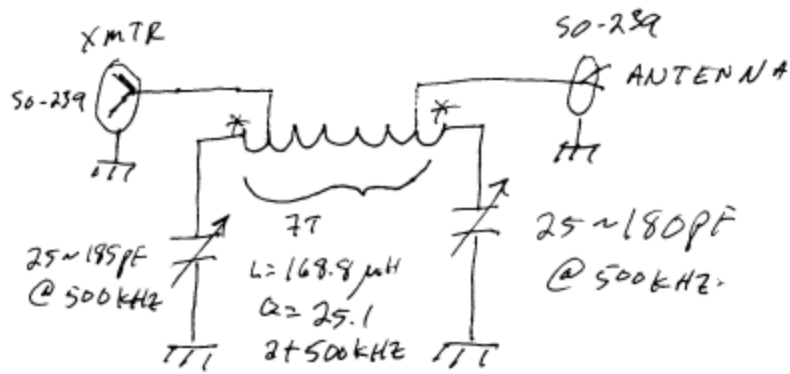 XMTR
SO-239
SO-239
ANTENNA
*
*
7T
L=168.8 μH
Q=25.1
at 500KHZ
25~185pF
@ 500KHZ
25~180pF
@ 500KHZ.